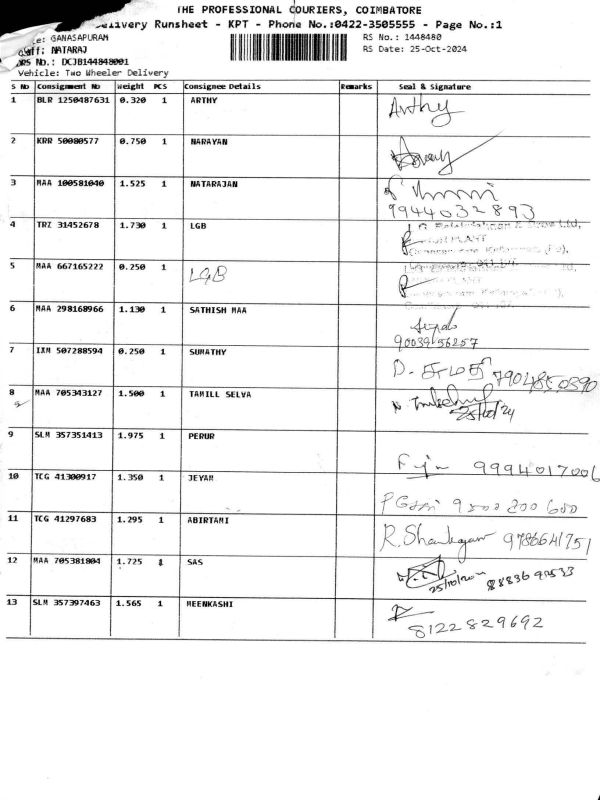 THE PROFESSIONAL COURIERS, COIMBATORE
Delivery Runsheet - KPT - Phone No.:0422-3505555 - Page No.:1
GANASAPURAM
RS No.: 1448480
NATARAJ
RS Date: 25-Oct-2024
DRS No.: DCJB144848001
Vehicle: Two Wheeler Delivery
S No Consignment No Weight PCS Consignee Details Remarks Seal & Signature
1 BLR 1250487631 0.320 1 ARTHY Arthy
2 KRR 50080577 0.750 1 NARAYAN
3 MAA 100581040 1.525 1 NATARAJAN
9944032893
4 TRZ 31452678 1.730 1 LGB
5 MAA 667165222 0.250 1 LGB
6 MAA 298168966 1.130 1 SATHISH MAA
9003956257
7 IXM 507288594 0.250 1 SUMATHY D. சுமதி 7904850390
8 MAA 705343127 1.500 1 TAMILL SELVA
25/10/24
9 SLM 357351413 1.975 1 PERUR
9994017006
10 TCG 41300917 1.350 1 JEYAM
11 TCG 41297683 1.295 1 ABIRTAMI
9786641751
12 MAA 705381804 1.725 1 SAS
13 SLM 357397463 1.565 1 MEENKASHI
8122829692